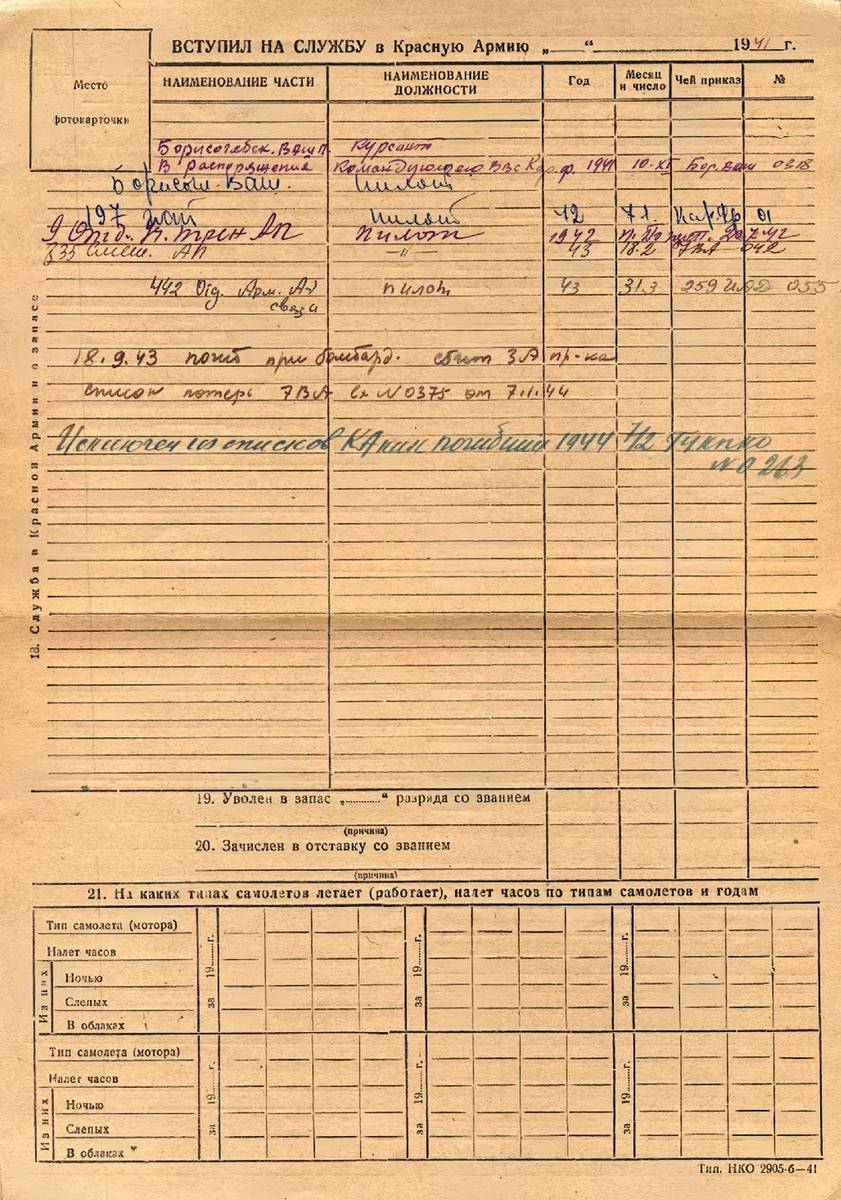 ВСТУПИЛ НА СЛУЖБУ в Красную Армию „ “ 1941 г.
Место
фотокарточки
НАИМЕНОВАНИЕ ЧАСТИ НАИМЕНОВАНИЕ ДОЛЖНОСТИ Год Месяц и число Чей приказ №
Борисоглебск. ВАШП. Курсант
В распоряжении Командующего ВВС Кар. ф. 1941 10-XI Бор. ваш 0318
Борисогл. ВАШ. пилот
197 пилот 42 7.1. Кар.Фр 01
9 Отд. п. трен АП пилот 1942
835 смеш. АП -"- 43 18.2 7ВА 042
442 Отд. Арм. АП связи пилот 43 31.3 259 ИАД 055
18.9.43 погиб при бомбард. сбит ЗА пр-ка
список потерь 7ВА вх N 0375 от 7.1.44
Исключен из списков КА как погибший 1944 7/2 ГУКНКО
N 0263
18. Служба в Красной Армии и о запасе
19. Уволен в запас „............“ разряда со званием
(причина)
20. Зачислен в отставку со званием
(причина)
21. На каких типах самолетов летает (работает), налет часов по типам самолетов и годам
Тип самолета (мотора) за 19......г. за 19......г. за 19......г.
Налет часов
Из них
Ночью
Слепых
В облаках
Тип самолета (мотора) за 19......г. за 19......г. за 19......г.
Налет часов
Из них
Ночью
Слепых
В облаках
Тип. НКО 2905-б—41